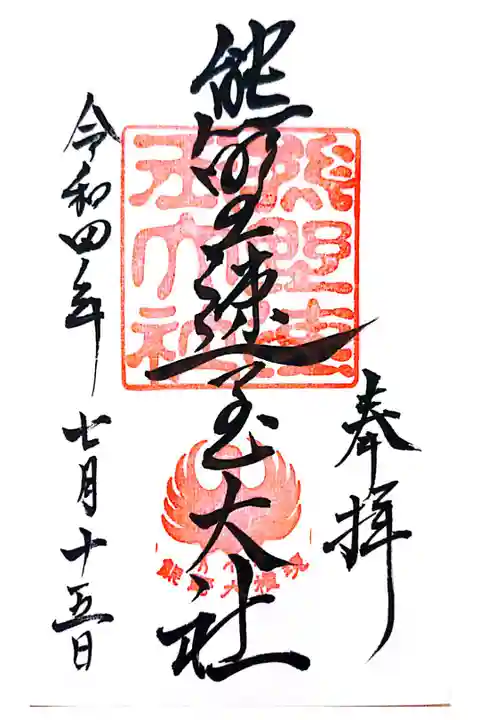 奉拝
熊野速玉大社
熊野速玉大社
令和四年 七月十五日